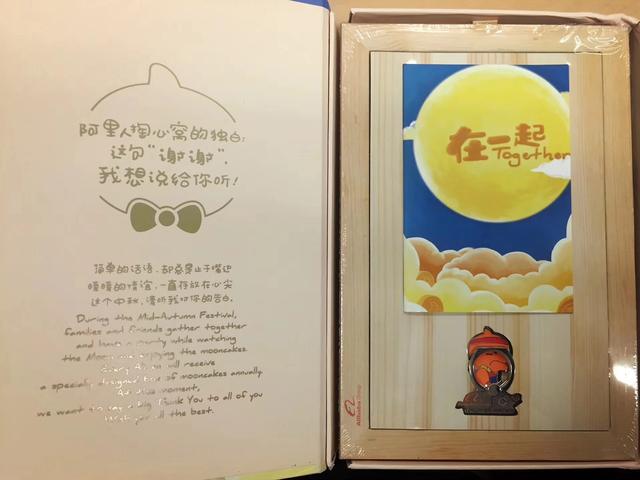 阿里人掏心窝的独白：
这句“谢谢”，
我想说给你听！
简单的话语，却总是止于嘴边
暖暖的情谊，一直存放在心尖
这个中秋，请听我们的告白。
During the Mid-Autumn Festival,
families and friends gather together
and have a party while watching
the Moon and enjoying the mooncakes.
Every Aliren will receive
a specially designed box of mooncakes annually.
At this moment,
we want to say a big Thank You to all of you
Wish you all the best.
在一起
Together
Alibaba Group